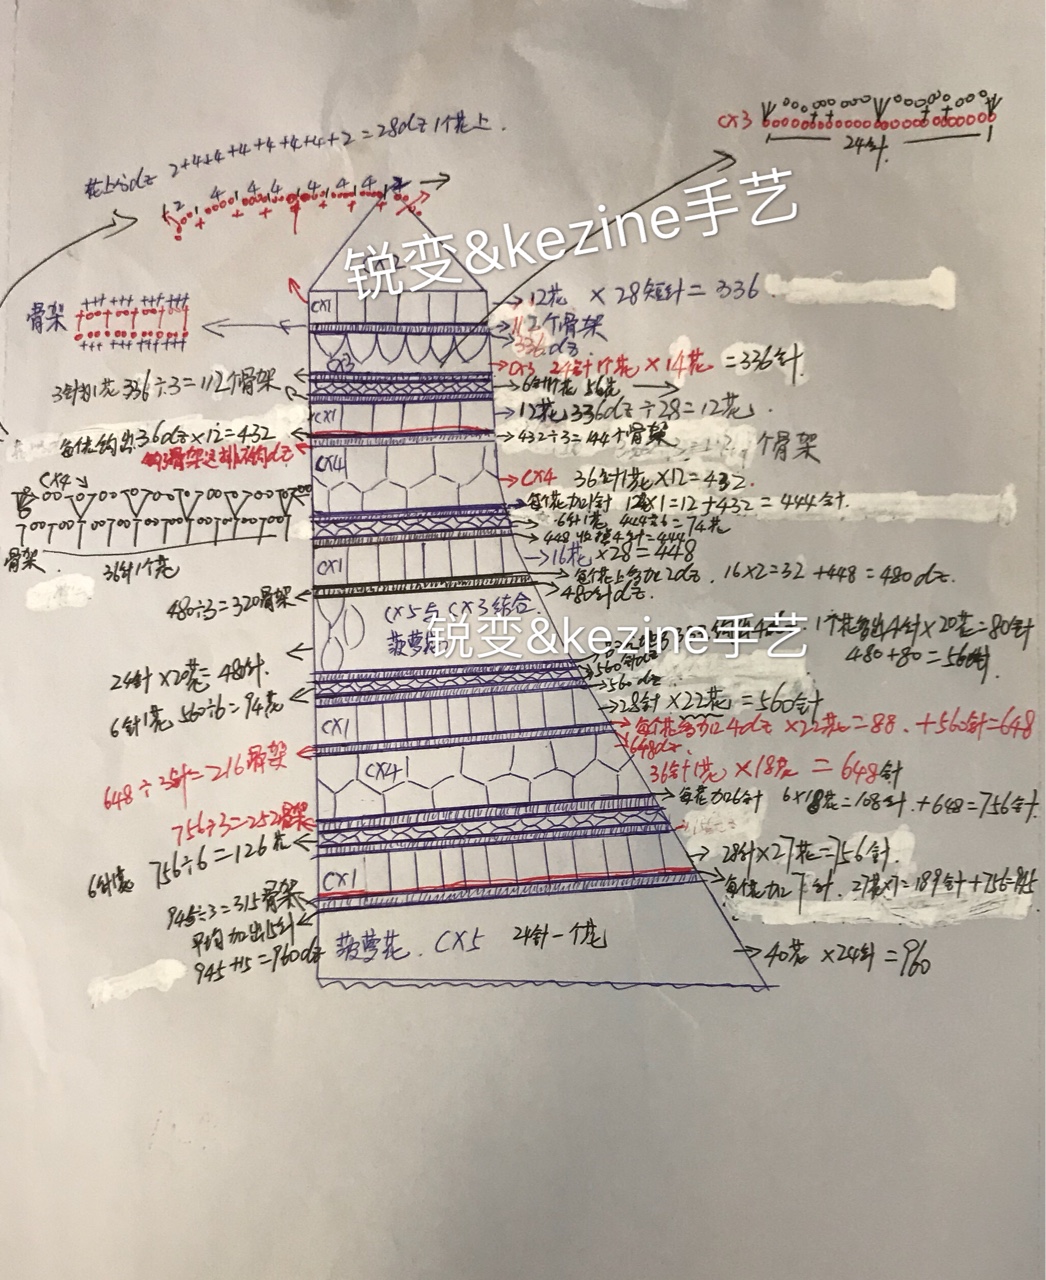 CX3
24针.
花上分dz 2+4+4+4+4+4+4+2=28dz 1个花上.
2 4 4 4 4 4 4 2
锐变&kezine手艺
CX1
→12花 ×28短针=336.
骨架
112个骨架
336dz
CX3
CX3 24针1个花×14花=336针.
3针为1花 336÷3=112个骨架
6针1花 56花
CX1
12花 336dz÷28=12花.
36dz×12=432
432÷3=144个骨架
个骨架
CX4
CX4
CX4 36针1花×12=432.
每个花加1针 12×1=12+432=444针.
6针1花 444÷6=74花
CX1
16花×28=448
骨架.
36针1个花
每个花上多加2dz. 16×2=32+448=480dz.
480针dz.
480÷3=320骨架
CX5与CX3结合.
菠萝花
锐变&kezine手艺
1个花多出4针×20花=80针
480+80=560针
24针×20花=480针.
560针dz
560dz
6针1花 560÷6=94花
28针×22花=560针
CX1
每个花多加4dz×22花=88.+560针=648
648dz.
648÷3针=216骨架
CX4
36针1花×18花=648针
每花加6针 6×18花=108针.+648=756针.
756÷3=252骨架
6针1花 756÷6=126花
28针×27花=756针.
CX1
每个花加7针.27花×7=189针+756=945
945÷3=315骨架
平均加出15针
945+15=960dz
菠萝花. CX5 24针一个花
40花×24针=960